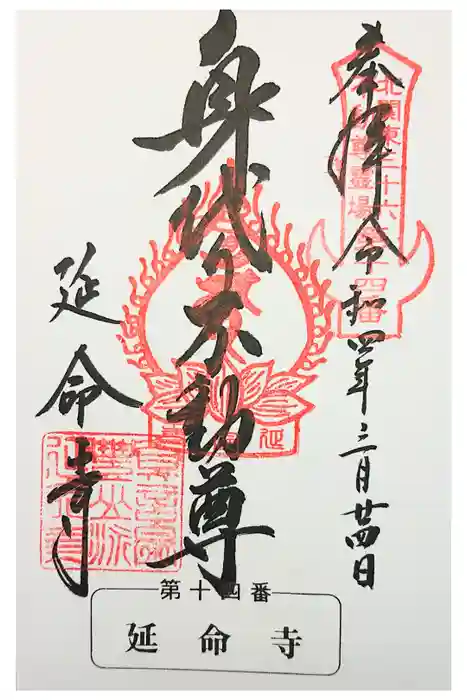 奉拝 令和四年三月廿四日
北關東三十六
尊靈場
四番
身代り不動尊
延命寺
第十四番
延命寺